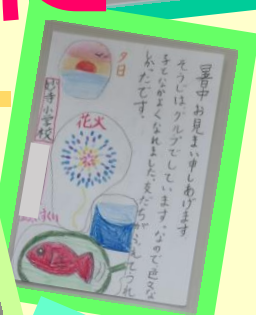 暑中お見まい申しあげます
そうじは、グループでしています。なので色々な
子となかよくなれました。友だちがふえてうれ
しかったです。
夕日
花火
小学校